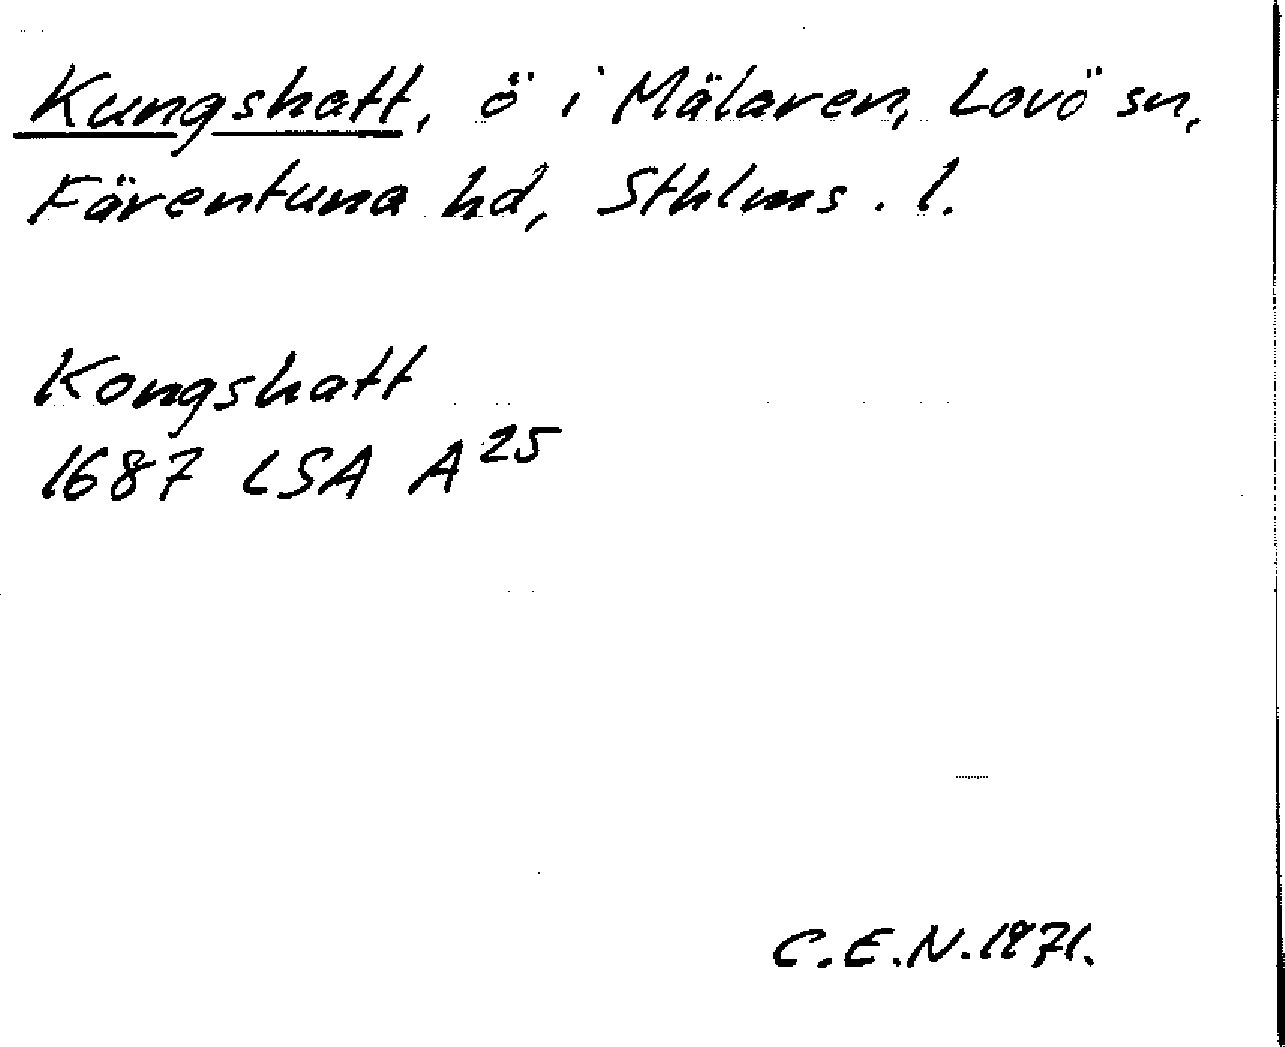 Kungshatt, ö i Mälaren, Lovö sn,
Färentuna hd, Sthlms. l.
Kongshatt
1687 LSA A 25
C.E.N. 1971.